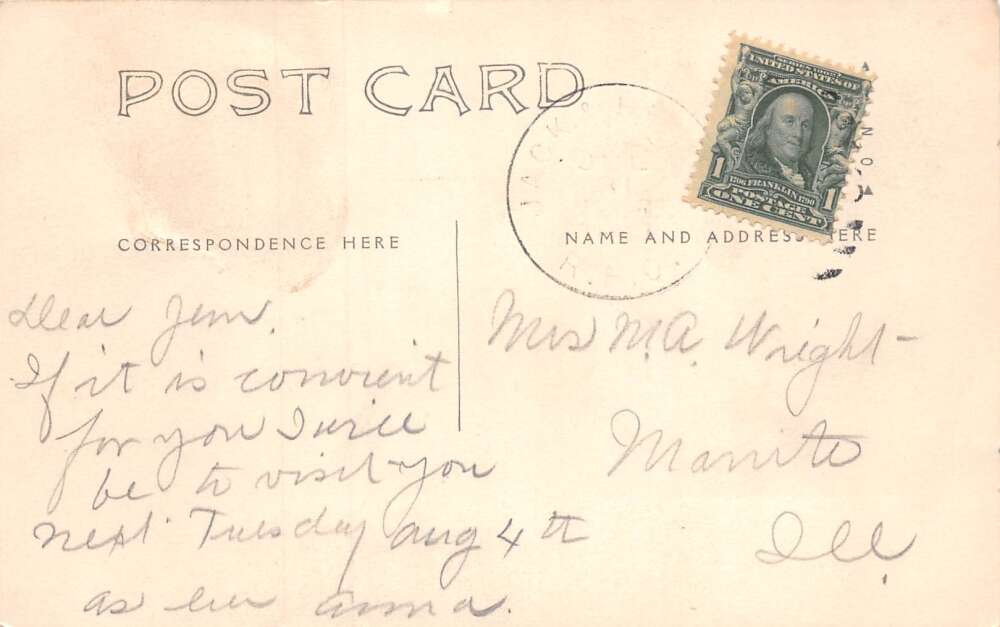 POST CARD
SERIES 1902
UNITED STATES OF
AMERICA
1 1
1706 FRANKLIN 1790
POSTAGE
ONE CENT
JACKS
R.P.O.
CORRESPONDENCE HERE
NAME AND ADDRESS HERE
Dear Jem,
If it is convient
for you I will
be to visit you
next Tuesday Aug 4th
as ever Anna.
Mrs M.A. Wright
Manito
Ill.